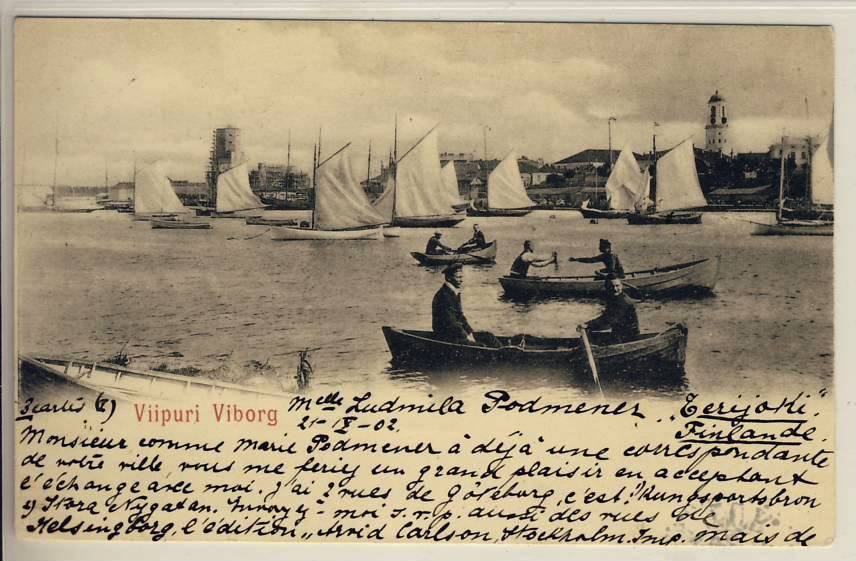 3 cartes (1) Viipuri Viborg Mlle Ludmila Podmener „Terijoki".
21-IX-02. Finlande.
Monsieur comme Marie Podmener à déjà une correspondante
de votre ville, vous me feriez un grand plaisir en acceptant
l'échange avec moi. J'ai 2 vues de Göteborg, c'est: "Kungsportsbron
y Stora Nygatan. Envoyez-moi s.v.p. aussi des vues de
Helsingborg, l'édition „Arvid Carlson, Stockholm. Imp. mais de